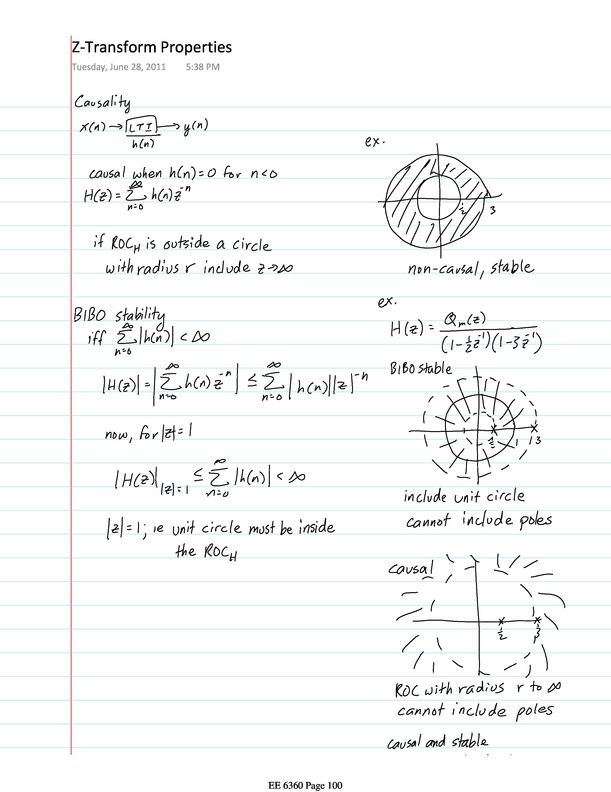 Z-Transform Properties
Tuesday, June 28, 2011 5:38 PM
Causality
x(n) → LTI → y(n)
h(n)
causal when h(n)=0 for n<0
H(z)=∑_{n=0}^{∞} h(n)z^{-n}
if ROC_H is outside a circle
with radius r include z→∞
BIBO stability
iff ∑_{n=0}^{∞} |h(n)| < ∞
|H(z)| = |∑_{n=0}^{∞} h(n) z^{-n}| ≤ ∑_{n=0}^{∞} |h(n)||z|^{-n}
now, for |z|=1
|H(z)|_{|z|=1} ≤ ∑_{n=0}^{∞} |h(n)| < ∞
|z|=1; ie unit circle must be inside
the ROC_H
ex.
1/2 3
non-causal, stable
ex.
H(z) = Q_m(z) / (1-1/2 z^{-1})(1-3z^{-1})
BIBO stable
1/2 1 3
include unit circle
cannot include poles
causal
1/2 3
ROC with radius r to ∞
cannot include poles
causal and stable
EE 6360 Page 100